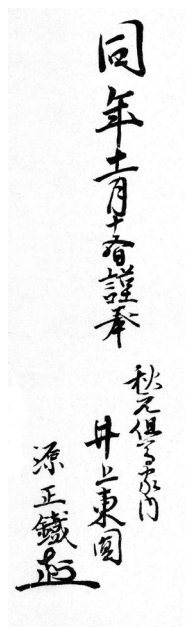 同年十一月十五日謹奉
秋元但馬家内
井上東圓
源正鐵